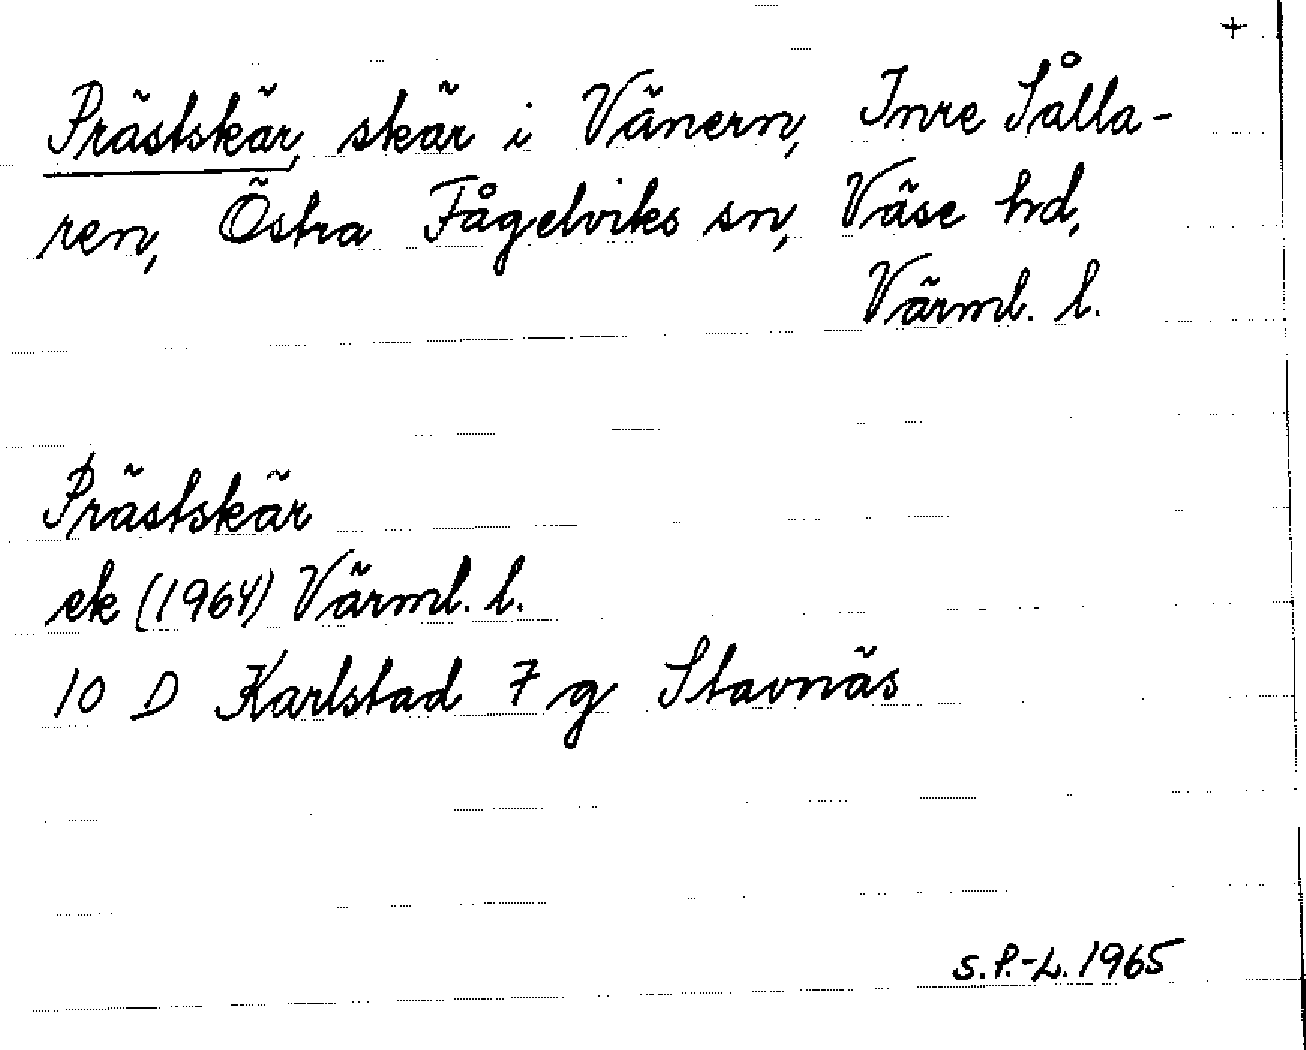 +
Prästskär, skär i Vänern, Inre Sålla-
ren, Östra Fågelviks sn, Väse hd,
Värml. l.
Prästskär
ek (1964) Värml. l.
10 D Karlstad 7 g Stavnäs
S.P.-L. 1965